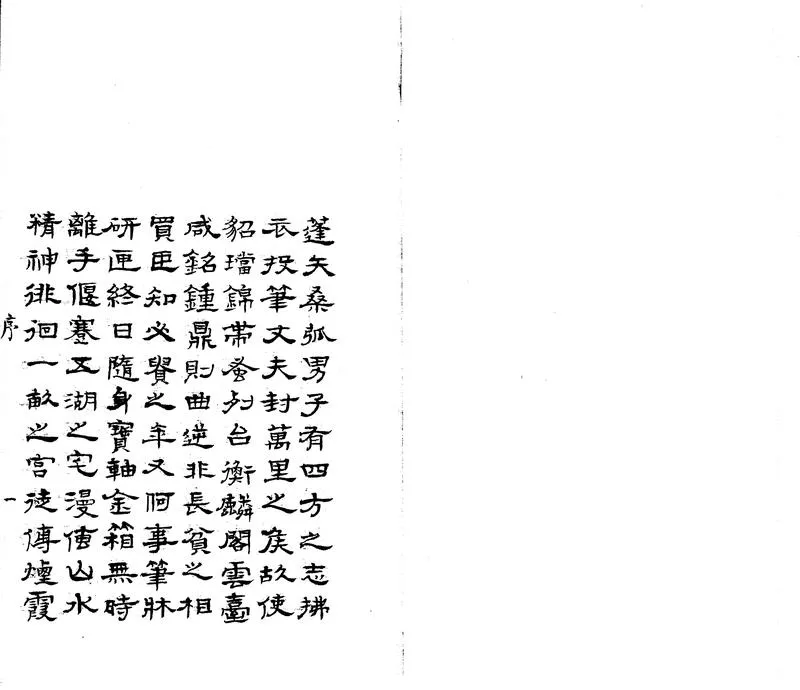 蓬矢桑弧男子有四方之志拂
衣投筆丈夫封萬里之侯故使
貂璫錦帶蚤列台衡麟閣雲臺
咸銘鍾鼎則曲逆非長貧之相
買臣知必貴之年又何事筆牀
研匣終日隨身寶軸金箱無時
離手偃蹇五湖之宅漫山水
精神徘徊一畝之宮徒傳煙霞
序 一